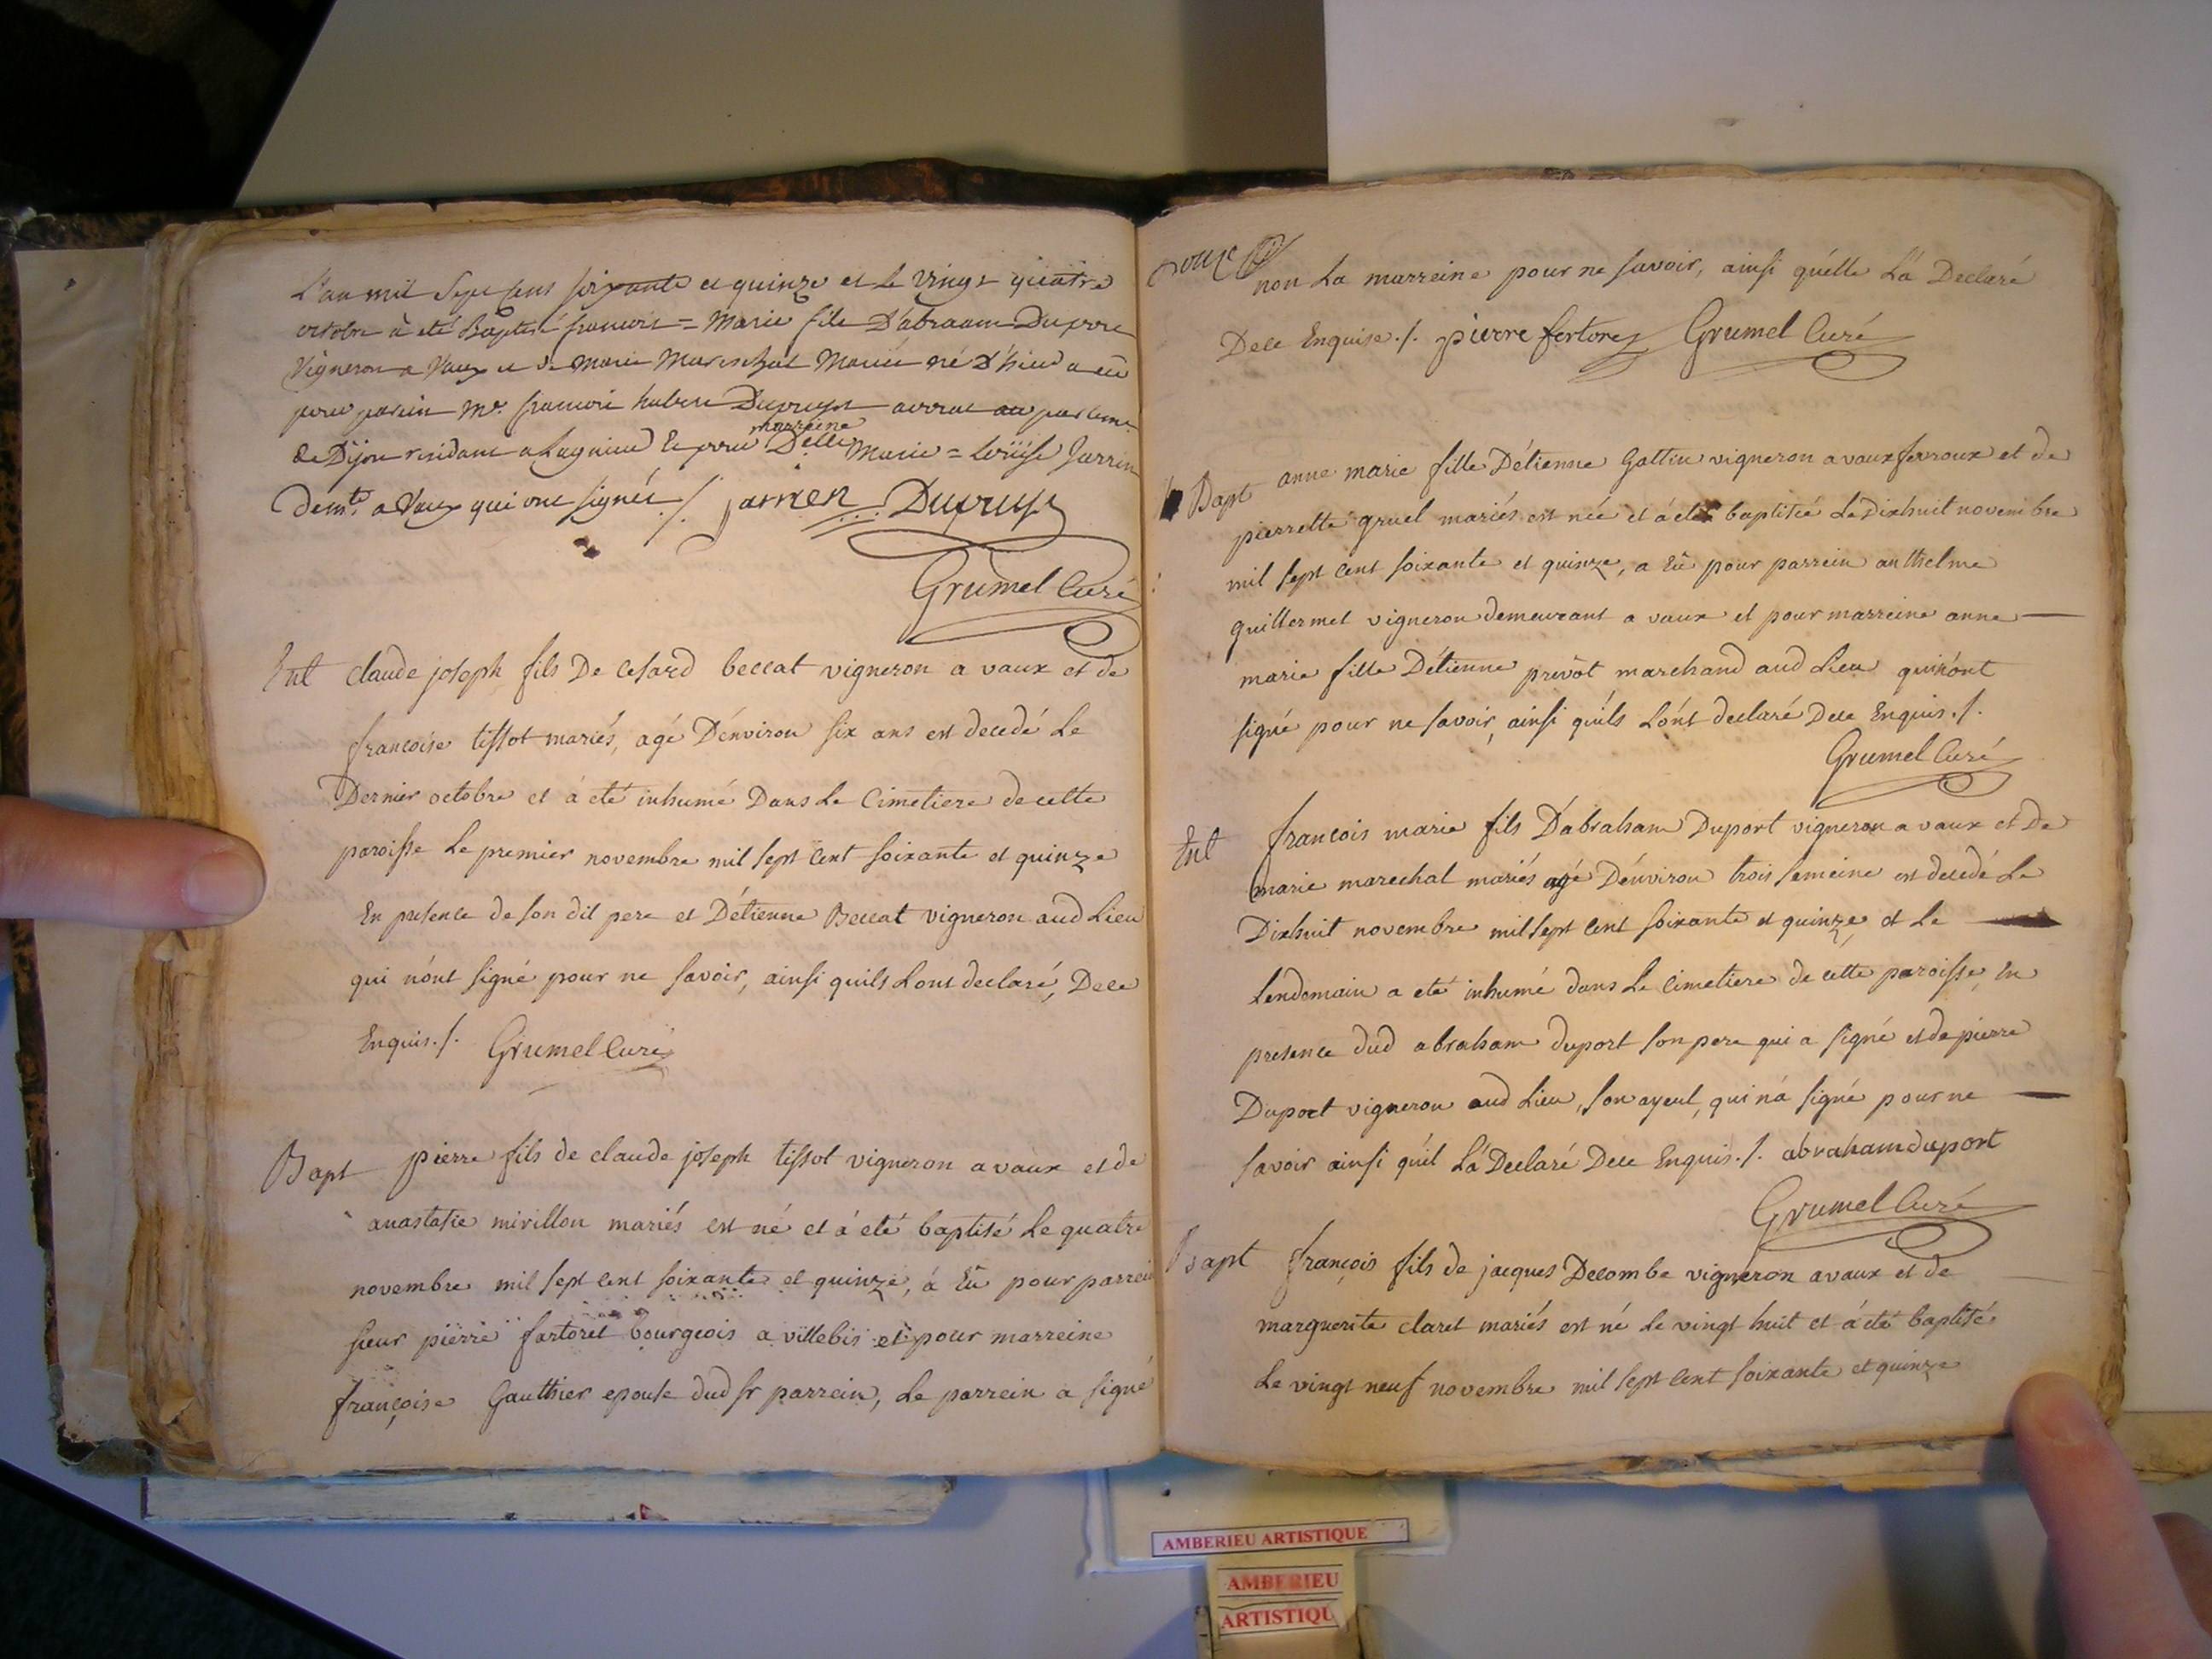 L'an mil sept cens soixante et quinze et le vingt quatre
octobre à eté Baptisé francois = Marie fils D'abraam Duport
vigneron a Vaux et de Marie Mareschal Mariés né d'hier a eu
pour parein Mr. francois hubert Dupuys avocat au parlemt
marreine
de Dijon residant a Lagnieu et pour Delle Marie = Loüise Jarrin
demte. a Vaux qui ont signés ./. jarrien Dupuys
Grumel Curé
Ent claude joseph fils De Cesard beccat vigneron a vaux et de
francoise tissot mariés, agé D'énviron six ans est decedé Le
Dernier octobre et à eté inhumé Dans Le Cimetiere de cette
paroisse Le premier novembre mil sept cent soixante et quinze
En presence de son dit pere et Détienne Beccat vigneron aud Lieu
qui n'ont signé pour ne savoir, ainsi quils Lont declaré, Dece
Enquis ./. Grumel Curé
Bapt pierre fils de claude joseph tissot vigneron a vaux et de
anastasie mivillon mariés est né et à eté baptisé Le quatre
novembre mil sept cent soixante et quinze, à Eû pour parrein
sieur pierre fortoret bourgeois a villebis et pour marreine
françoise Gauthier epouse dud sr parrein, Le parrein a signé
onze
non La marreine pour ne savoir, ainsi qu'elle L'a Declaré
Dece Enquise ./. pierre fertoret Grumel Curé
Bapt anne marie fille Détienne Gottin vigneron a vauxfevroux et de
pierrette gruel mariés est née et à eté baptisée Le Dixhuit novembre
mil sept cent soixante et quinze, a Eû pour parrein anthelme
guillermet vigneron demeurant a vaux et pour marreine anne
marie fille Détienne prevôt marchand aud Lieu qui n'ont
signé pour ne savoir, ainsi qu'ils L'ont declaré Dece Enquis ./.
Grumel Curé
Ent françois marie fils D'abraham Duport vigneron a vaux et De
marie marechal mariés agé D'énviron trois semeine est decedé Le
Dixhuit novembre mil sept cent soixante et quinze, et Le
Lendemain a eté inhumé dans Le Cimetiere de cette paroisse, En
presence dud abraham duport son pere qui a signé et de pierre
Duport vigneron aud Lieu, son ayeul, qui n'a signé pour ne
savoir ainsi qu'il L'a Declaré Dece Enquis ./. abraham duport
Grumel Curé
Bapt françois fils de jacques Decombe vigneron a vaux et de
marguerite claret mariés est né Le vingt huit et à eté baptisé
Le vingt neuf novembre mil sept cent soixante et quinze
AMBERIEU ARTISTIQUE
AMBERIEU
ARTISTIQU